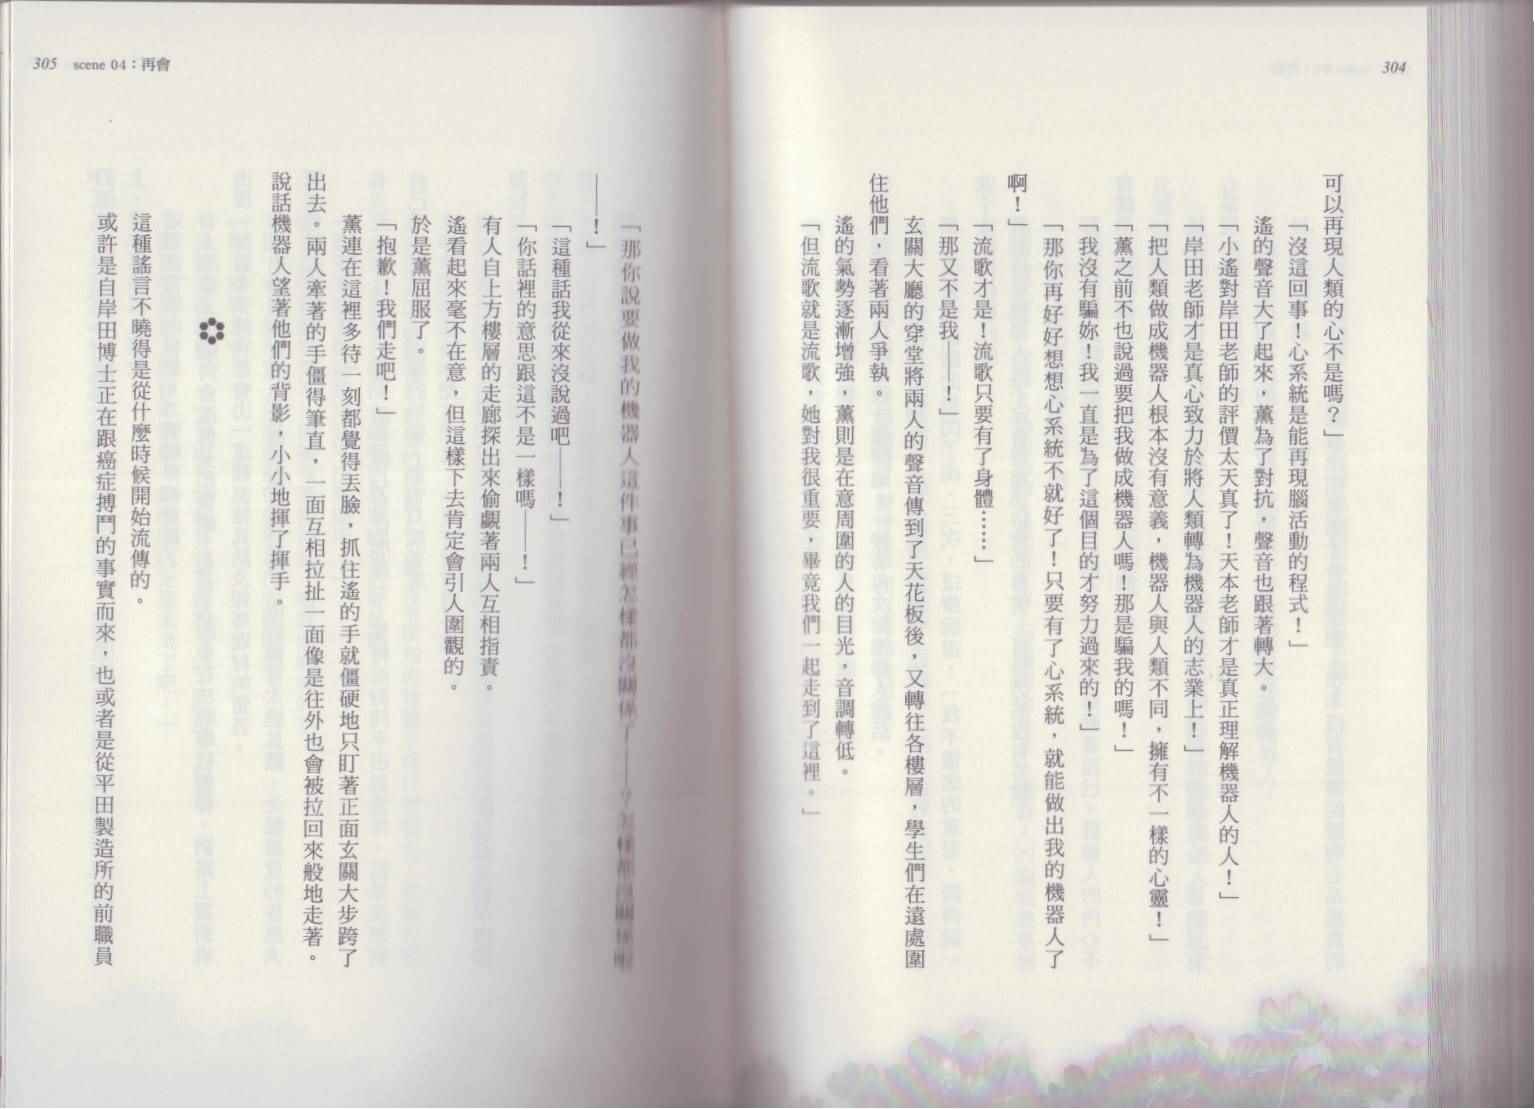 304
可以再現人類的心不是嗎？」
「沒這回事！心系統是能再現腦活動的程式！」
遙的聲音大了起來，薰為了對抗，聲音也跟著轉大。
「小遙對岸田老師的評價太天真了！天本老師才是真正理解機器人的人！」
「岸田老師才是真心致力於將人類轉為機器人的志業上！」
「把人類做成機器人根本沒有意義，機器人與人類不同，擁有不一樣的心靈！」
「薰之前不也說過要把我做成機器人嗎！那是騙我的嗎！」
「我沒有騙妳！我一直是為了這個目的才努力過來的！」
「那你再好好想想心系統不就好了！只要有了心系統，就能做出我的機器人了
啊！」
「流歌才是！流歌只要有了身體……」
「那又不是我——！」
玄關大廳的穿堂將兩人的聲音傳到了天花板後，又轉往各樓層，學生們在遠處圍
住他們，看著兩人爭執。
遙的氣勢逐漸增強，薰則是在意周圍的人的目光，音調轉低。
「但流歌就是流歌，她對我很重要，畢竟我們一起走到了這裡。」
305 scene 04：再會
「那你說要做我的機器人這件事已經怎樣都沒關係了——？怎樣都沒關係啦
——！」
「這種話我從來沒說過吧——！」
「你話裡的意思跟這不是一樣嗎——！」
有人自上方樓層的走廊探出來偷覷著兩人互相指責。
遙看起來毫不在意，但這樣下去肯定會引人圍觀的。
於是薰屈服了。
「抱歉！我們走吧！」
薰連在這裡多待一刻都覺得丟臉，抓住遙的手就僵硬地只盯著正面玄關大步跨了
出去。兩人牽著的手僵得筆直，一面互相拉扯一面像是往外也會被拉回來般地走著。
說話機器人望著他們的背影，小小地揮了揮手。
這種謠言不曉得是從什麼時候開始流傳的。
或許是自岸田博士正在跟癌症搏鬥的事實而來，也或者是從平田製造所的前職員